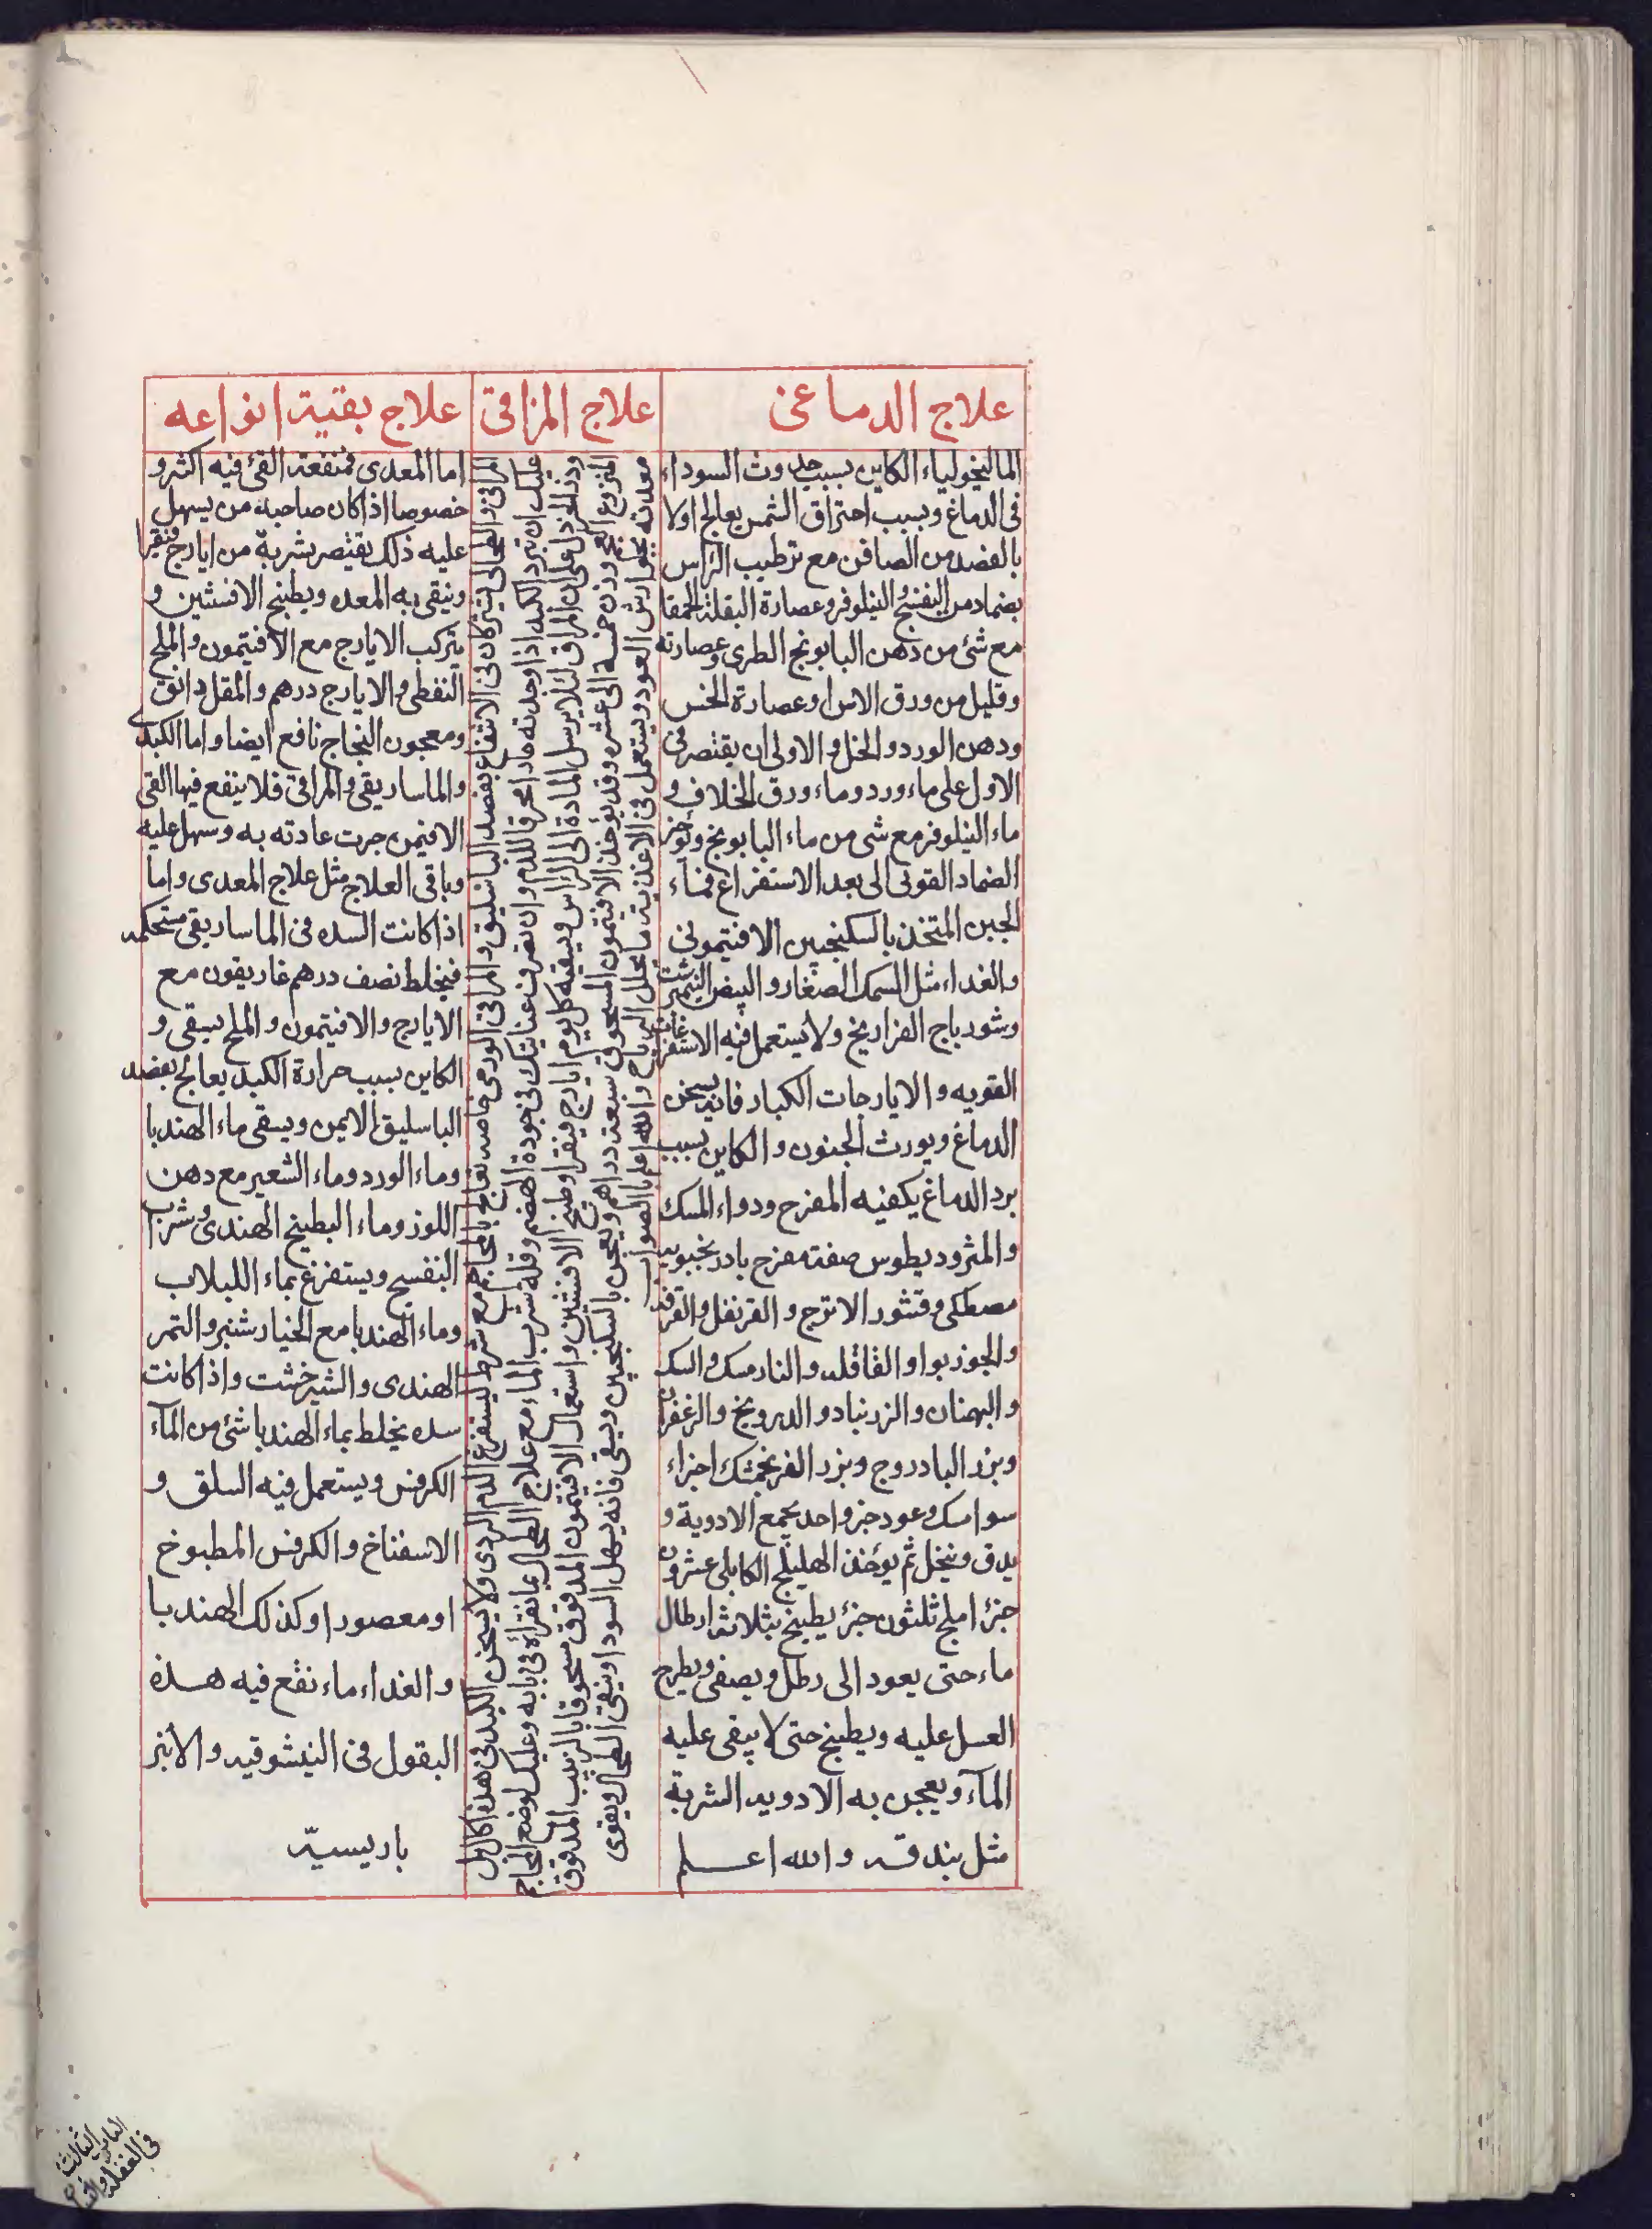 علاج الدماغى
الماليخولياء الكاين بسبب حدوث السوداء
فى الدماغ وبسبب احتراق الشمس يعالج اولا
بالفصد من الصافن مع ترطيب الراس
بضماد من البنفسج والنيلوفر وعصارة البقلة الحمقا
مع شئ من دهن البابونج الطرى وعصارته
وقليل من ورق الاس او عصارة الخس
ودهن الورد والخل والاولى ان يقتصر فى
الاول على ماء ورد وماء ورق الخلاف و
ماء النيلوفر مع شى من ماء البابونج وتوخر
الضماد القوى الى بعد الاستفراغ فماء
الجبن المتخذ بالسكنجبين الافتيمونى
والغداء مثل السمك الصغار والبيض النيمبرشت
وشورباج الفراريخ ولا يستعمل فيه الاستفراغات
القويه والايارجات الكبار فانه يسخن
الدماغ ويورث الجنون والكاين بسبب
برد الدماغ يكفيه المفرح ودواء المسك
والمثروديطوس صفته مفرح بادرنجبويه
مصطكى وقشور الاترج والقرنفل والقرفه
والجوزبوا والقاقله والنارمسك والسك
والبهنان والزرنباد والدرونج والزعفران
وبزر البادروج وبزر الفرنجمشك اجزاء
سوا مسك وعود جزو احد يجمع الادوية و
يدق وينخل ثم يؤخذ الهليلج الكابلى عشرون
جزءا املج ثلثون جزء يطبخ بثلاثة ارطال
ماء حتى يعود الى رطل ويصفى ويطرح
العسل عليه ويطبخ حتى لا يبقى عليه
المآء ويعجن به الادويه الشربة
مثل بندقه والله اعلم
علاج المراقى
المراقى والطحالى يشتركان فى الانتفاع بفصد الباسليق والمراقى الورمى خاصه يعالج بالمحاجم مع شرط ليستفرغ الدم الردى ولا يسخن الكبد فى هذا كان بل
عليك ان تبرد الكبد اذا وجدته حادا محرقا للدم وان تصرف عنايتك فى جودة الهضم وقلة شرب الماء مع علاج الطحال بما تقراه فى بابه وعليك بوضع المحاجم
ودز الخردل على المراق لئلا يرسل المادة الى الراس ويسقيه كل يوم ايارج فيقرا وطبيخ الافسنتين واستعمال الافتيمون المدقوق مسحوقا بالزبيب المدقوق
المنزوع العجم وزن خمسة الى عشره وقد يؤخذ الافتيمون المسحوق سبعة دراهم ويعجن بالسكنجبين ويسقى فانه يسهل السودا وينقى الطحال ويقوى
معدته بجوارش العود ويستعمل فى الاغذية ما يحلل الرياح والله اعلم بالصواب
علاج بقية انواعه
اما المعدى فمنفعة القئ فيه اكثر و
خصوصا اذا كان صاحبه من يسهل
عليه ذلك يقتصر بشربة من ايارج فيقرا
وينقى به المعده ويطبخ الافسنتين و
يتركب الايارج مع الافتيمون والملح
النفطى والايارج درهم والمقل دانق
ومعجون النجاح نافع ايضا واما الكبدى
والماساريقى والمراقى فلا ينفع فيها القى
الا فيمن جرت عادته به وسهل عليه
وباقى العلاج مثل علاج المعدى واما
اذا كانت السده فى الماساريقى مستحكمه
فيخلط نصف درهم غاريقون مع
الايارج والافتيمون والملح يسقى و
الكاين بسبب حرارة الكبد يعالج بفصد
الباسليق الايمن ويسقى ماء الهندبا
وماء الورد وماء الشعير مع دهن
اللوز وماء البطيخ الهندى وشراب
البنفسج ويستفرغ بماء اللبلاب
وماء الهندبا مع الخيارشنبر والتمر
الهندى والشيرخشت واذا كانت
سده يخلط بماء الهندبا شئ من المآء
الكرفس ويستعمل فيه السلق و
الاسفناخ والكرفس المطبوخ
او معصورا وكذلك الهندبا
والغداء ماء نقع فيه هذه
البقول فى النيشوقيه والانبر
باريسيّه
الباب الثالث